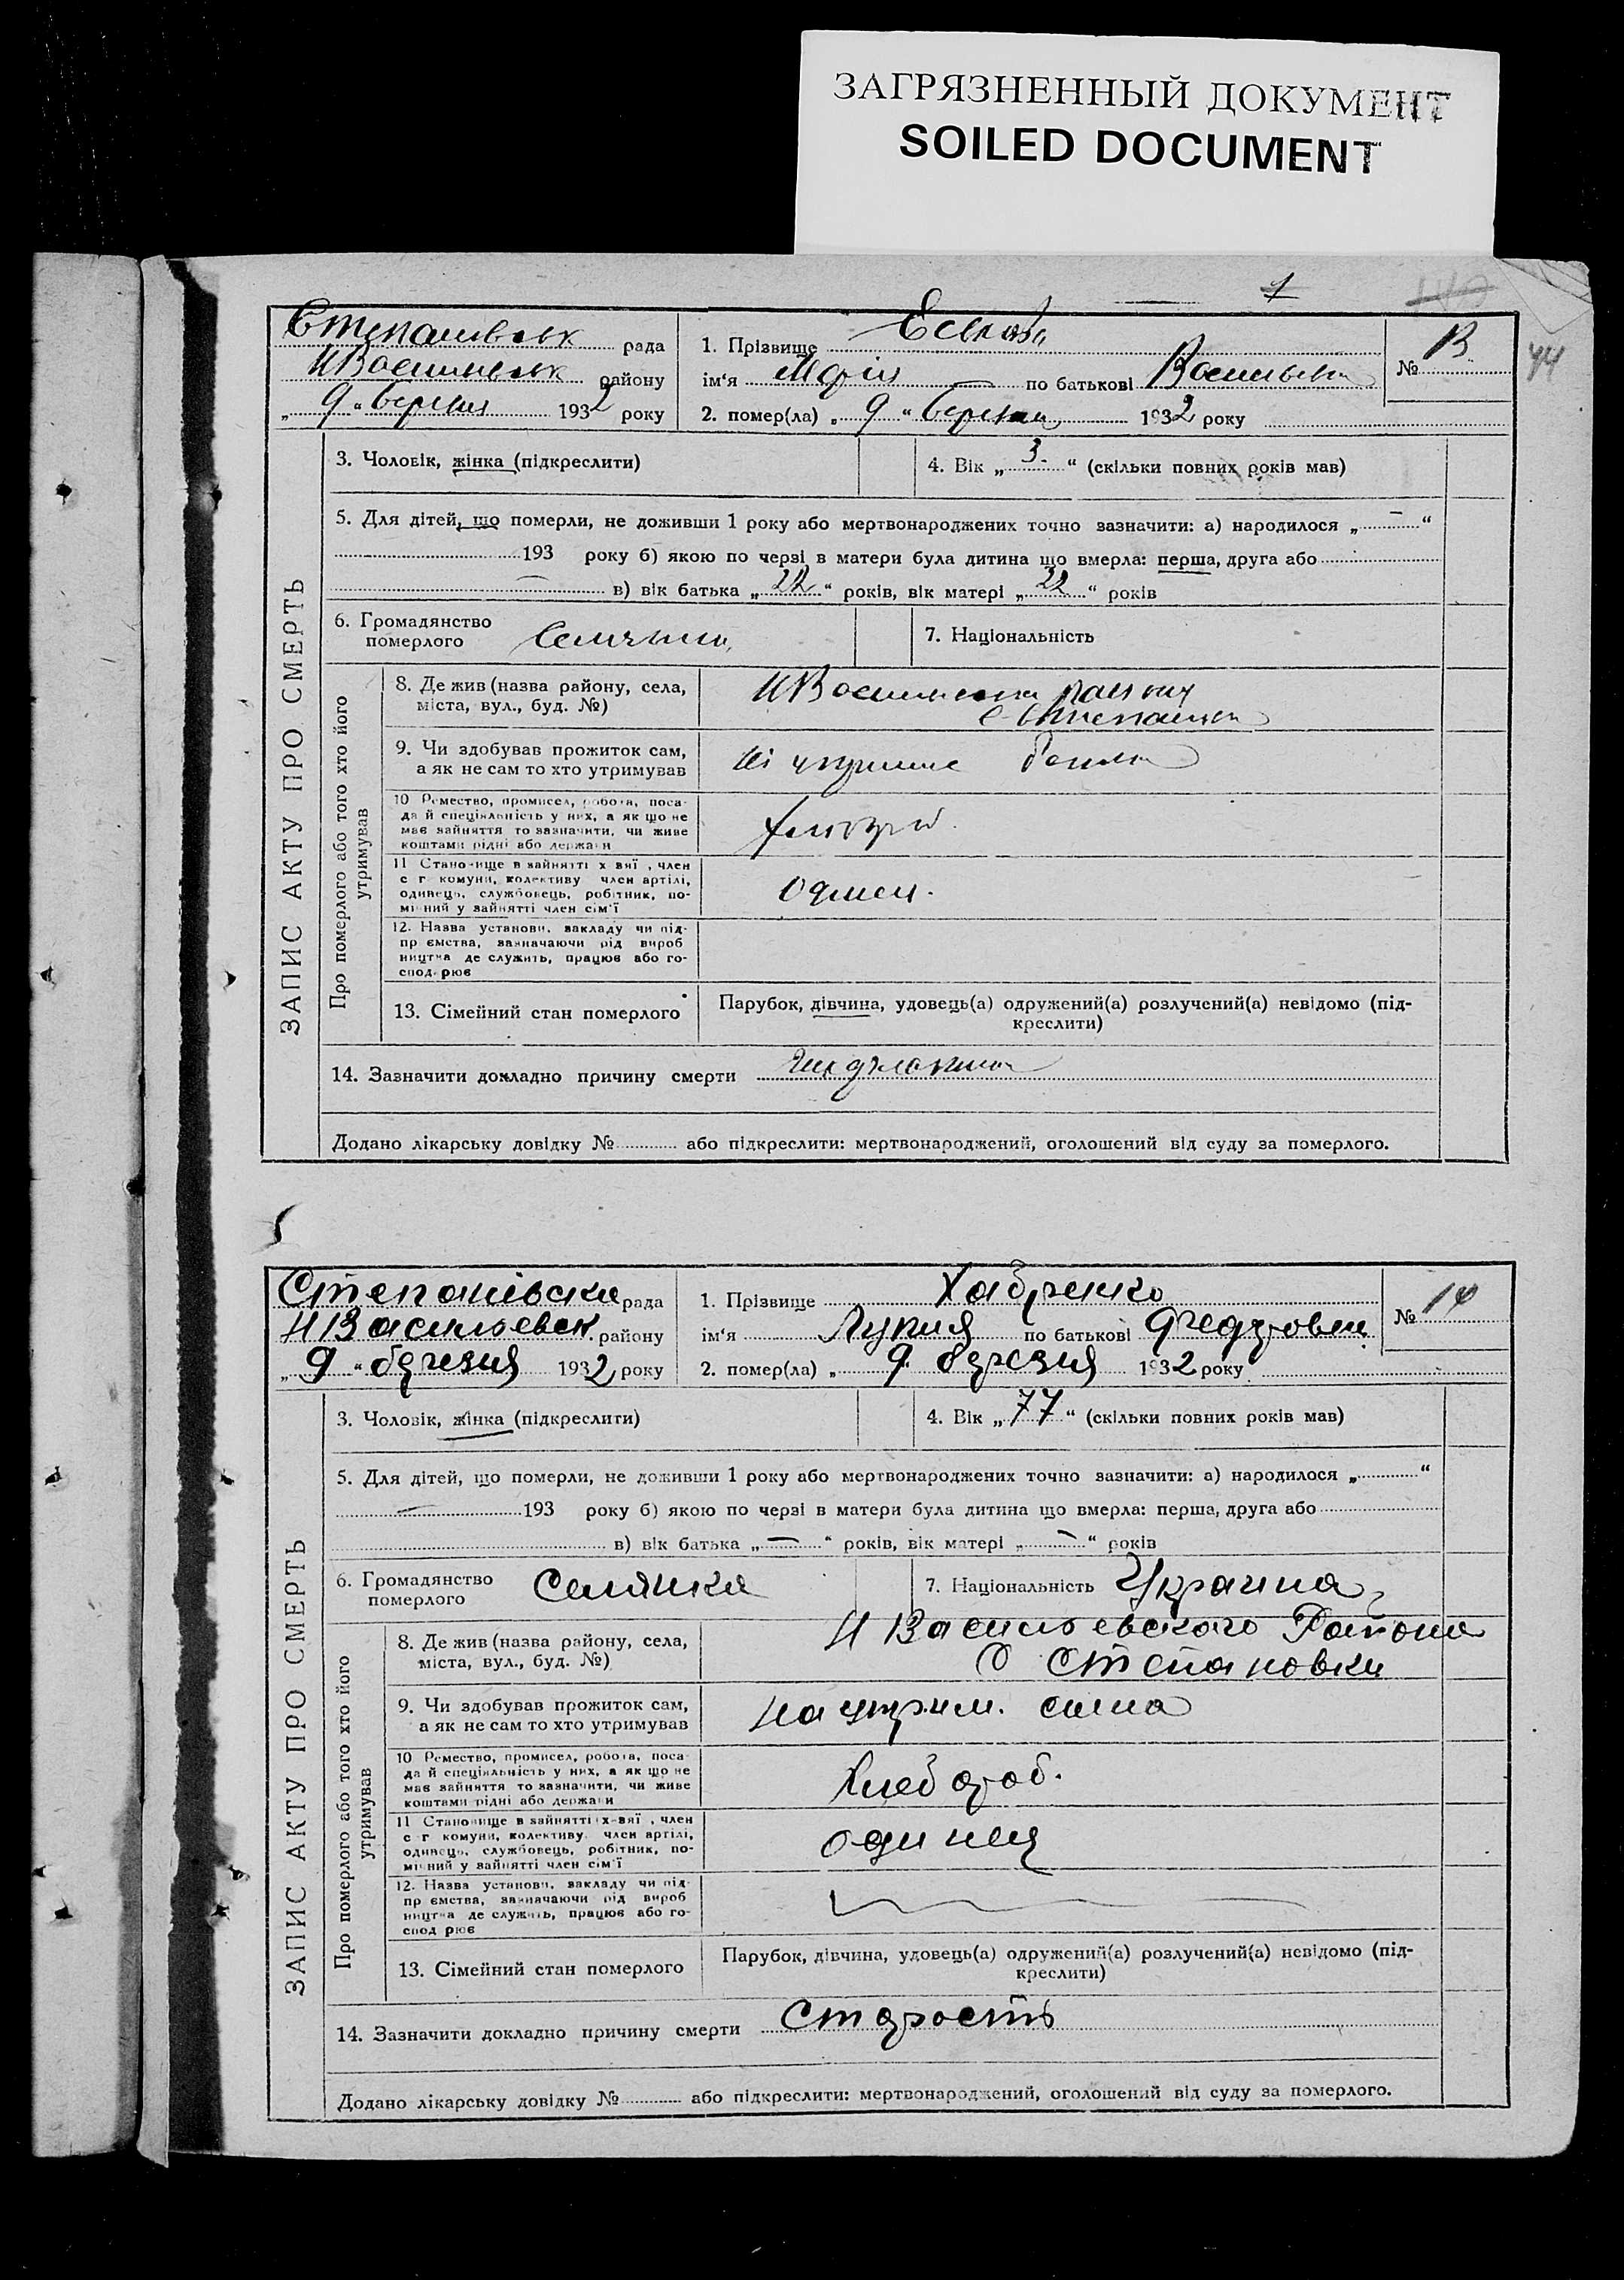 ЗАГРЯЗНЕННЫЙ ДОКУМЕНТ
SOILED DOCUMENT
44
ЗАПИС АКТУ ПРО СМЕРТЬ
рада
району
„ 9 “ березня 1932 року
1. Прізвище
ім‘я Марія по батькові
2. помер(ла) „ 9 “ березня 1932 року
№ 13
3. Чоловік, жінка (підкреслити)
4. Вік „ 3 “ (скільки повних років мав)
5. Для дітей, що померли, не доживши 1 року або мертвонароджених точно зазначити: а) народилося „ — “
193 року б) якою по черзі в матери була дитина що вмерла: перша, друга або
— в) вік батька „ 22 “ років, вік матері „ 22 “ років
6. Громадянство
померлого
7. Національність
Про померлого або того хто його
утримував
8. Де жив (назва району, села,
міста, вул., буд. №)
9. Чи здобував прожиток сам,
а як не сам то хто утримував
10 Ремество, промисел, робота, поса-
да й спеціяльність у них, а як що не
має зайняття то зазначити, чи живе
коштами рідні або держави
11 Становище в зайнятті х-вяї, член
с г комуни, колективу член артілі,
одинець, службовець, робітник, по-
мічний у зайнятті член сім'ї
12. Назва установи, закладу чи під-
пр ємства, зазначаючи рід вироб
ництва де служить, працює або го-
сподарює
13. Сімейний стан померлого
Парубок, дівчина, удовець(а) одружений(а) розлучений(а) невідомо (під-
креслити)
14. Зазначити докладно причину смерти
Додано лікарську довідку № або підкреслити: мертвонароджений, оголошений від суду за померлого.
ЗАПИС АКТУ ПРО СМЕРТЬ
Степанівска рада
району
„ 9 “ березня 1932 року
1. Прізвище
ім‘я по батькові
2. помер(ла) „ 9 березня 1932 року
№ 14
3. Чоловік, жінка (підкреслити)
4. Вік „ 77 “ (скільки повних років мав)
5. Для дітей, що померли, не доживши 1 року або мертвонароджених точно зазначити: а) народилося „ “
— 193 року б) якою по черзі в матери була дитина що вмерла: перша, друга або
в) вік батька „ — “ років, вік матері „ — “ років
6. Громадянство
померлого
Селянка
7. Національність Украина
Про померлого або того хто його
утримував
8. Де жив (назва району, села,
міста, вул., буд. №)
Н Васильевского Района
С Степановки
9. Чи здобував прожиток сам,
а як не сам то хто утримував
на утрим. сина
10 Ремество, промисел, робота, поса-
да й спеціяльність у них, а як що не
має зайняття то зазначити, чи живе
коштами рідні або держави
Хлебороб.
11 Становище в зайнятті х-вяї, член
с г комуни, колективу член артілі,
одинець, службовець, робітник, по-
мічний у зайнятті член сім'ї
одинец
12. Назва установи, закладу чи під-
пр ємства, зазначаючи рід вироб
ництва де служить, працює або го-
спод рює
13. Сімейний стан померлого
Парубок, дівчина, удовець(а) одружений(а) розлучений(а) невідомо (під-
креслити)
14. Зазначити докладно причину смерти Старость
Додано лікарську довідку № або підкреслити: мертвонароджений, оголошений від суду за померлого.